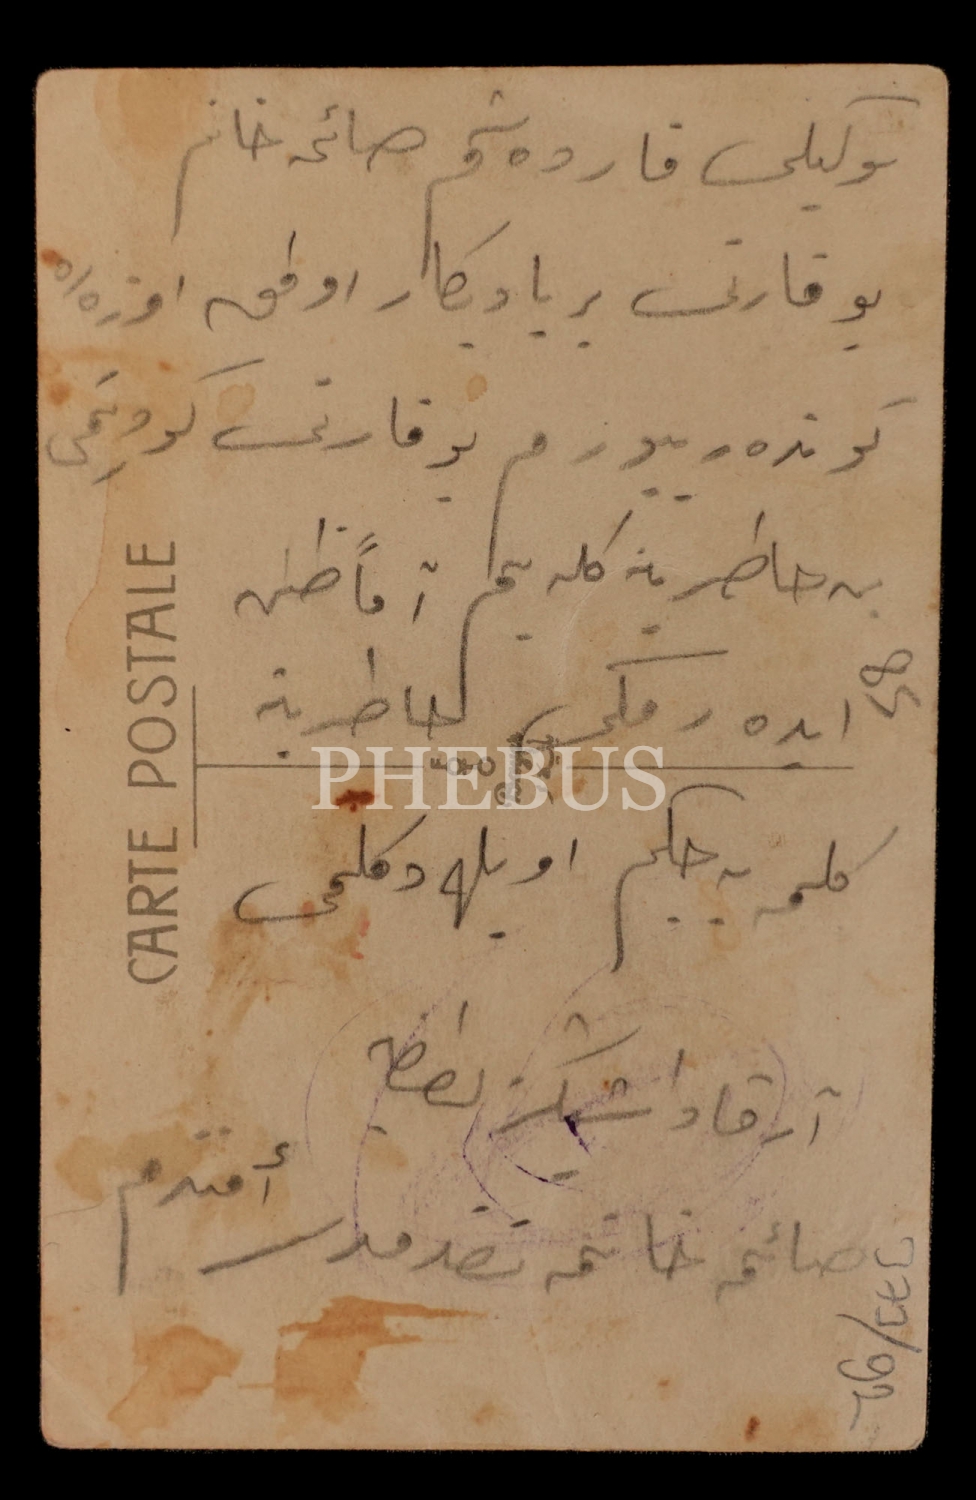 سوكيلى قارده شم صائمه خانم
بو قارتى بر يادیکار اولمق اوزره
كوندەرييورم بو قارتى كوردیكمى
به خاطرينه كله يم آماظن
ايده رمكى خاطرينه
كلميه جكم اويله دكلمى
آرقاداشكز لطفيه
أفندم
صائمه خانمه تقدمدر
CARTE POSTALE
PHEBUS